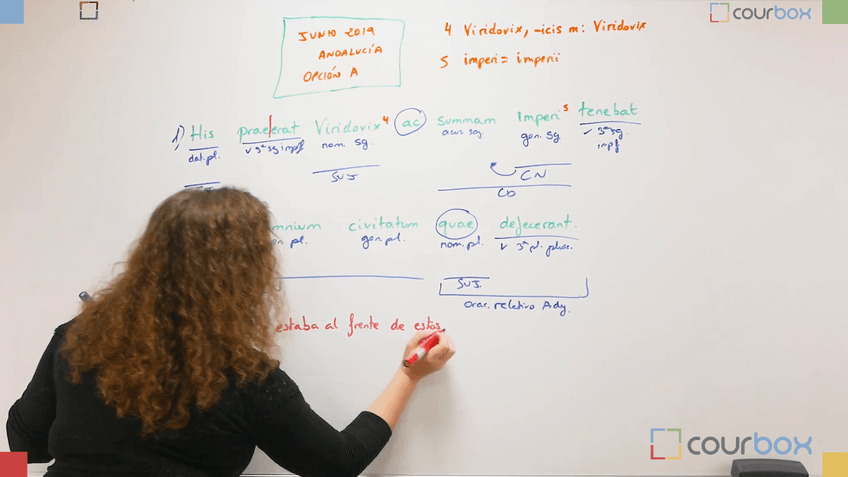 courbox
JUNIO 2019
ANDALUCÍA
OPCIÓN A
4 Viridovix, -icis m: Viridovix
5 imperi = imperii
1) His praeerat Viridovix4 ac summam Imperi5 tenebat
dat. pl. v 3ª sg impf nom. sg. acus. sg. gen. sg v 3ª sg. impf
SUJ CN
CD
civitatum quae defecerant.
gen. pl. nom. pl. v 3ª pl. plusc.
SUJ.
Orac. relativo Adj.
estaba al frente de estos
courbox